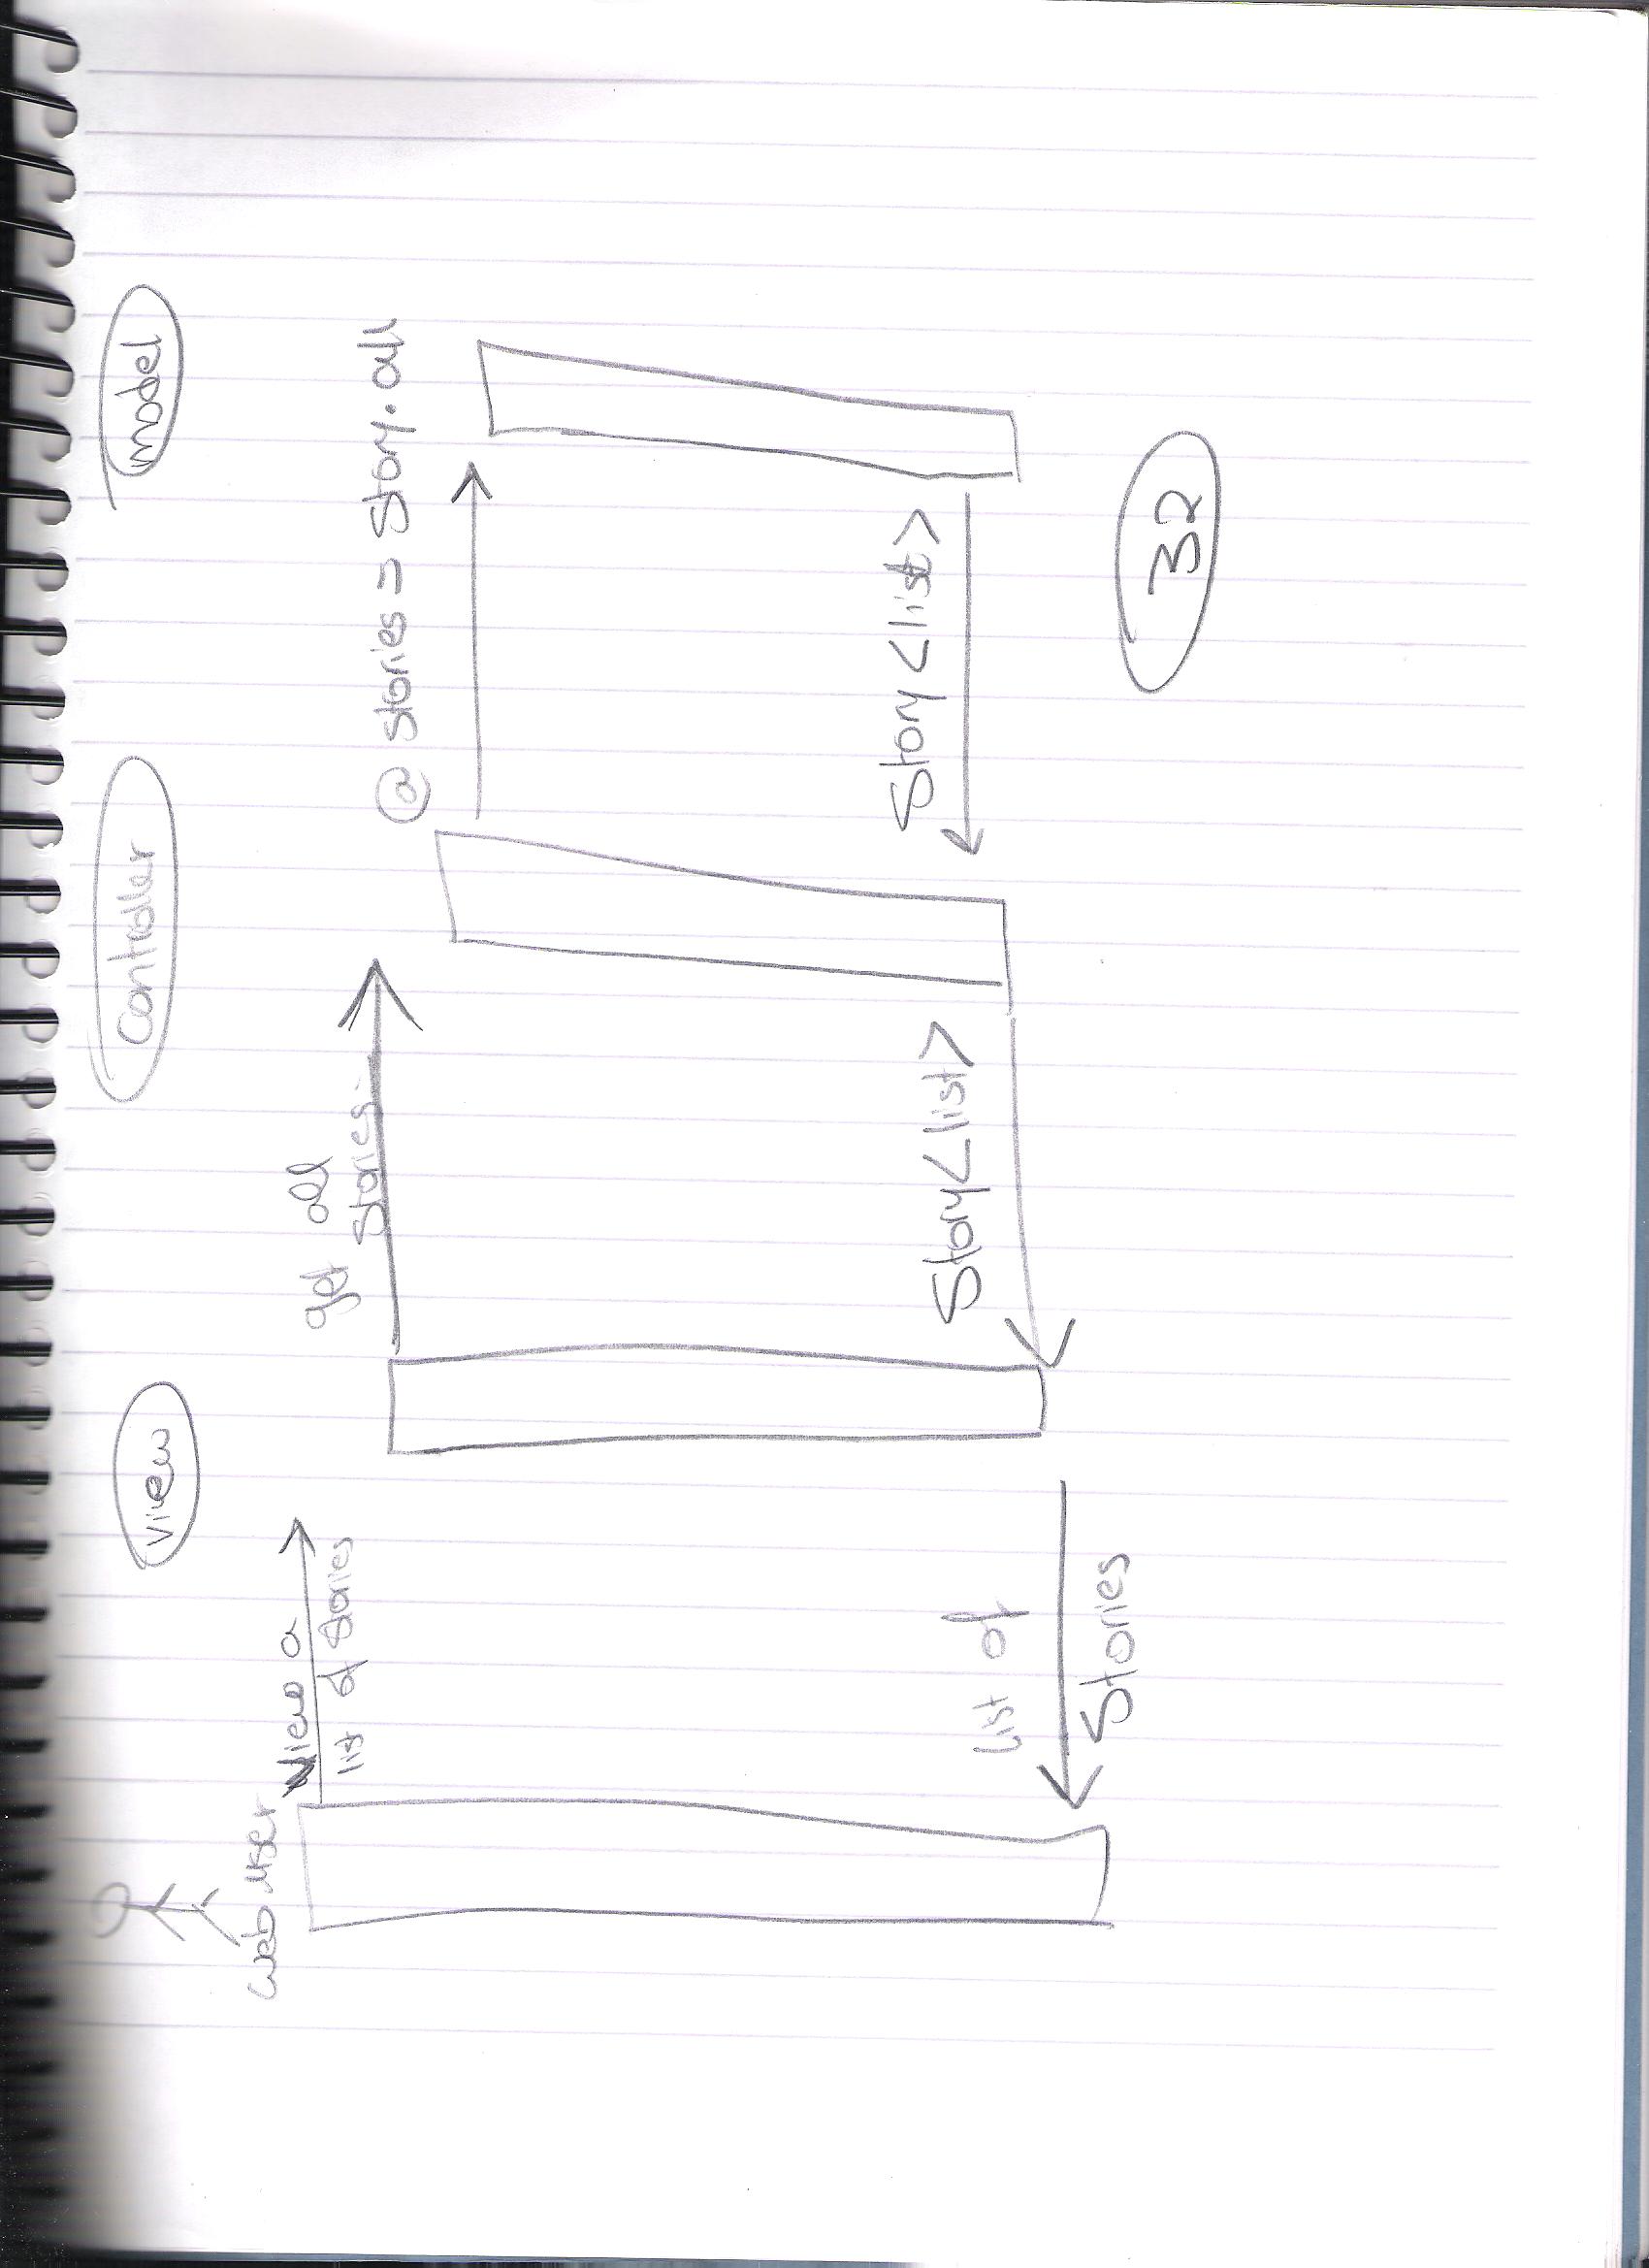 web user
View
Controller
Model
View a
list of stories
get all
stories
@ stories = Story.all
Story <list>
Story <list>
List of
Stories
32